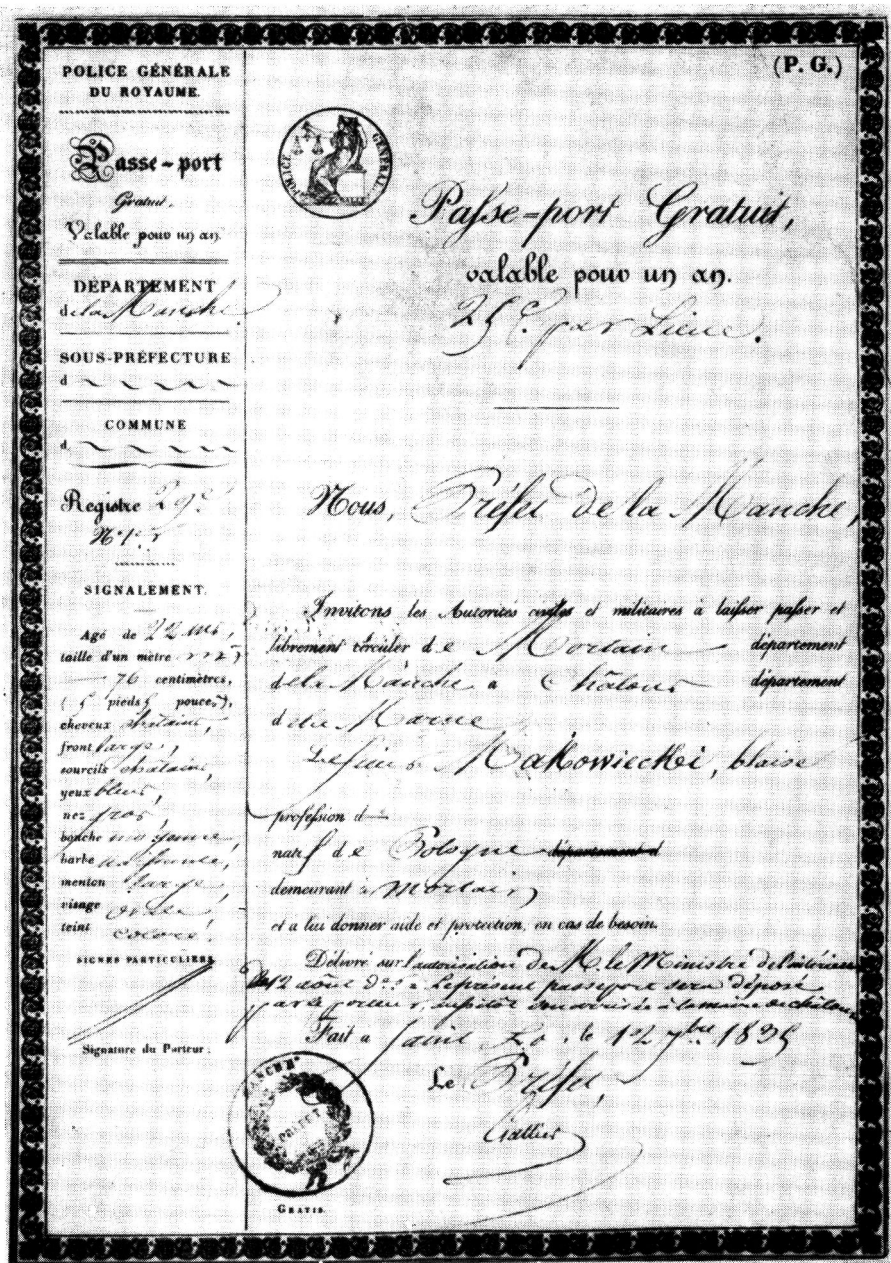 POLICE GÉNÉRALE
DU ROYAUME.
Passe-port
Gratuit,
Valable pour un an.
DÉPARTEMENT
de la Manche
SOUS-PRÉFECTURE
d
COMMUNE
d
Registre
N°
SIGNALEMENT.
Agé de 22 ans,
taille d'un mètre
76 centimètres,
(5 pieds 5 pouces),
cheveux châtains,
front large,
sourcils châtains,
yeux bleus
nez gros,
bouche moyenne,
barbe
menton large
visage ovale,
teint coloré
SIGNES PARTICULIERS
Signature du Porteur:
(P. G.)
POLICE GÉNÉRALE
Passe-port Gratuit,
valable pour un an.
par Lieue.
Nous, Préfet de la Manche,
Invitons les Autorités civiles et militaires à laisser passer et
librement circuler de Mortain département
de la Manche à Châlons département
de la Marne
Le sieur Makowiecki, blaise
profession d
natif de Pologne département d
demeurant à Mortain
et à lui donner aide et protection, en cas de besoin.
Délivré sur l'autorisation de M. le Ministre de l'intérieur
12 août Le présent passeport sera déposé
à la mairie de châlons
Fait à Saint Lo, le 12 bre 1835
Le Préfet,
MANCHE
PRÉFET
GRATIS.